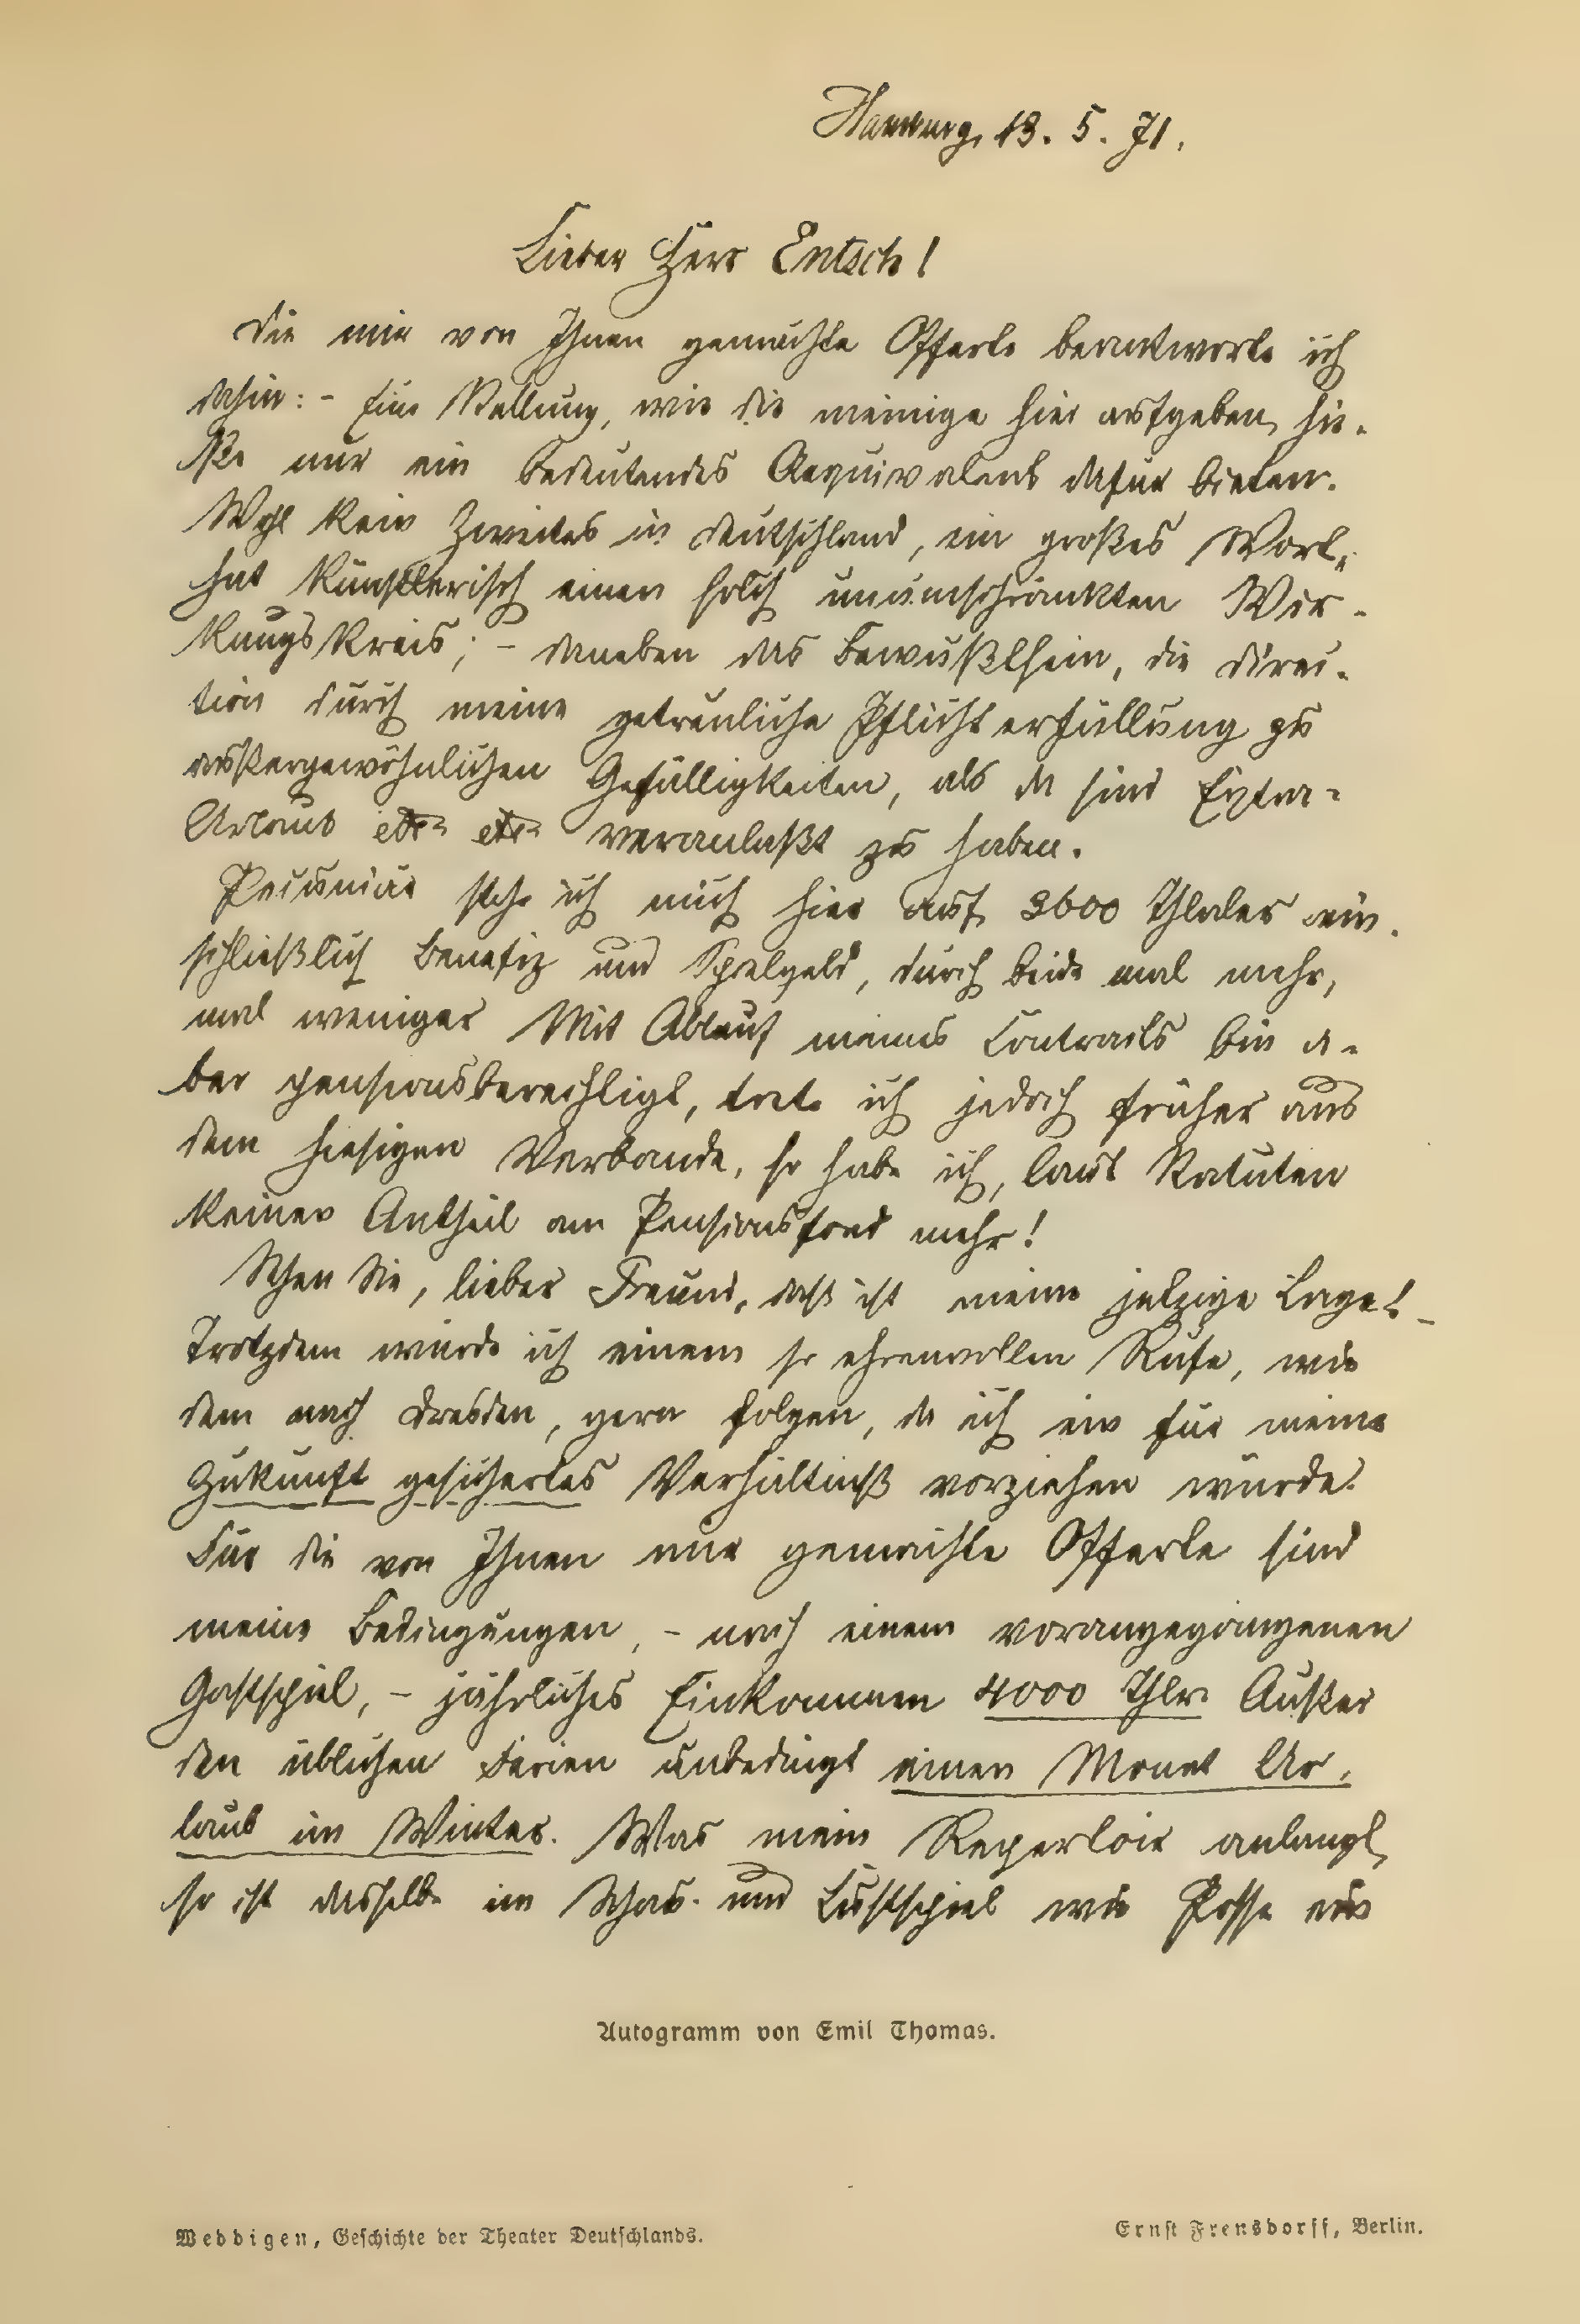 Hamburg, 13. 5. 71.
Lieber Herr Entsch!
Die mir von Ihnen gemachte Offerte beantworte ich
dahin: - Eine Stellung, wie die meinige hier aufgeben, hie-
ße nur ein bedeutendes Aequivalent dafür bieten.
Wohl kein Zweites in Deutschland, ein großes Wort,
hat künstlerisch einen solch unumschränkten Wir-
kungskreis; - daneben das Bewußtsein, die Direc-
tion durch meine getreuliche Pflichterfüllung zu
außergewöhnlichen Gefälligkeiten, als da sind Extra-
Urlaub etc etc veranlaßt zu haben.
Pecuniär stehe ich mich hier auf 3600 Thaler ein-
schließlich Benefiz und Spielgeld, durch beide mal mehr,
mal weniger Mit Ablauf meines Contracts bin a-
ber pensionsberechtigt, trete ich jedoch früher aus
dem hiesigen Verbande, so habe ich, laut Statuten
keinen Antheil am Pensionsfond mehr!
Sehen Sie, lieber Freund, daß ist meine jetzige Lage! -
Trotzdem würde ich einem so ehrenvollen Rufe, wie
dem nach Dresden, gern folgen, da ich ein für meine
Zukunft gesichertes Verhältniß vorziehen würde.
Für die von Ihnen mir gemachte Offerte sind
meine Bedingungen, - nach einem vorangegangenen
Gastspiel, - jährliches Einkommen 4000 Thlr. Außer
den üblichen Ferien unbedingt einen Monat Ur-
laub im Winter. Was mein Repertoir anlangt,
so ist dasselbe im Schau- und Lustspiel wie Posse ein
Autogramm von Emil Thomas.
Weddigen, Geschichte der Theater Deutschlands.
Ernst Frensdorff, Berlin.